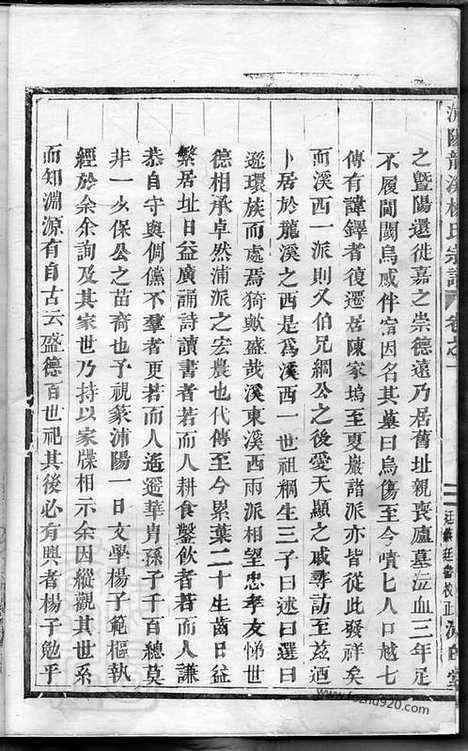 浦陽龍溪楊氏宗譜 卷之一
之暨陽遠徙嘉之崇德遠乃居舊址親喪廬墓泣血三年足
不履閫閾烏感伴宿因名其墓曰烏傷至今嘖七人口越七
傳有諱鐸者復遷居陳家塢至夏巖諸派亦從此發祥矣
而溪西一派則又伯兄綱公之後愛天顯之戚尋訪至茲迺
卜居於龍溪之西是為溪西一世祖綱生三子曰述曰選曰
遜環族而處焉猗歟盛哉溪東溪西兩派相望忠孝友悌世
德相承卓然浦派之宏農也代傳至今累葉二十生齒日益
繁居址日益廣誦詩讀書者若而人耕食鑿飲者若而人
恭自守與倜儻不羣者更若而人遙遙華胄孫子千百總莫
非一少保公之苗裔也予視篆浦陽一日文學楊子範樞執
經於余余詢及其家世乃持以家牒相示余因縱觀其世系
而知淵源有自古云盛德百世祀其後必有興者楊子勉乎
www.fozhu920.com